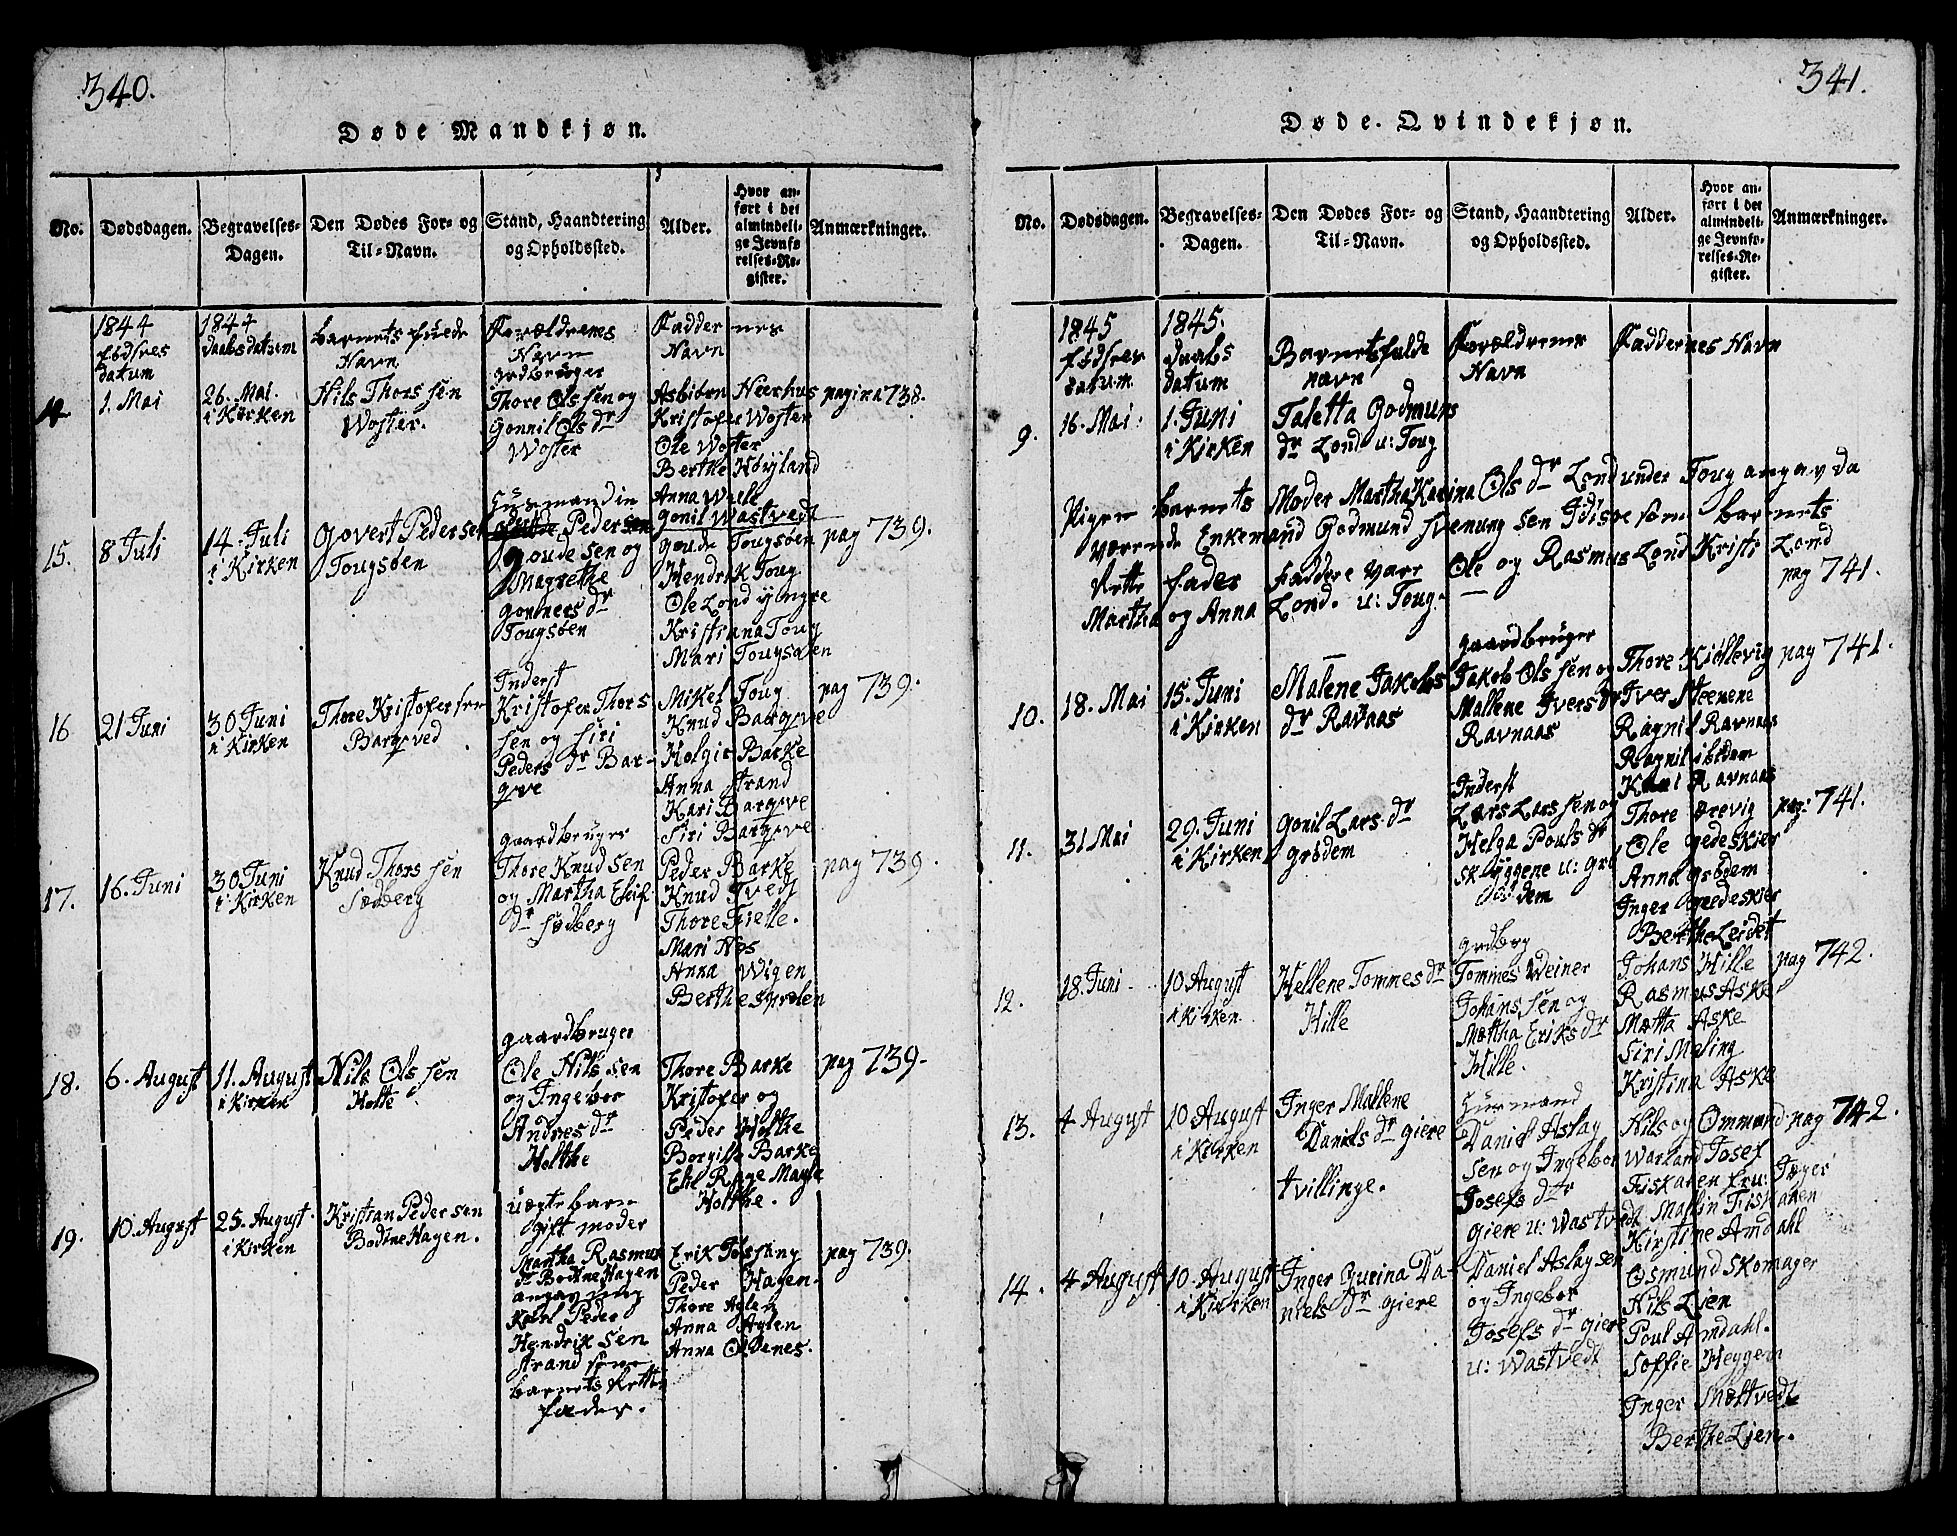 340.
Døde Mandkjøn.
No.
Dødsdagen.
Begravelses-
Dagen.
Den Dødes For- og
Til-Navn.
Stand, Haandtering
og Opholdssted.
Alder.
Hvor an-
ført i det
almindeli-
ge Jevnfø
relses-Re-
gister.
Anmærkninger.
1844
fødsels
datum
1844
daabsdatum
barnets fulde
Navn
Forældrenes
Navn
Faddernes
Navn
14
1. Mai
26. Mai.
i Kirken
Nils Thors sen
Woster.
grdbruger
Thore Ols sen og
Gonnil Ols dr
Woster
Asbiørn Neerhus
Kristofer Woster
Ole Woster
Berthe Høiyland
Anna
Gonil Wastvedt
pagina 738.
15.
8 Juli
14. Juli
i Kirken
Govert Pedersen
Tougsøen
Husmand in
Peder
Goude sen og
Magrethe
dr
Tougsøen
Goude Tougsøen
Hendrik Toug
Ole Lond yngre
Kristiana Toug
Mari Tougsøen
pag 739.
16
21 Juni
30 Juni
i Kirken
Thore Kristofersen
Inderst
Kristofer Thors
sen og Siri
Peders dr Bar-
Mikel Toug
Knud
Holgir Barke
Anna Strand
Kari
Siri
pag 739.
17.
16. Juni
30 Juni
i Kirken
Knud Thors sen
Sødberg
gaardbruger
Thore Knud sen
og Martha
dr Sødberg
Peder Barke
Knud Tvedt
Thore
Mari
Anna Wigen
Berthe
pag 739
18.
6. August
11. August
i Kirken
Nils Ols sen
Holte
gaardbruger
Ole Nils sen
og Ingebor
Andres dr
Holthe
Thore Barke
Kristofer og
Peder Holthe
Borgille Barke
Holthe.
pag 739.
19.
10. August
25. August.
i Kirken
Kristian Peder sen
Bodine Hagen.
Uægte barn
Gift moder
Martha Rasmus
dr Bothne Hagen
angav
Karl Peder
Hendrik sen
Strand som
barnets Rette
fader.
Erik
Peder Hagen.
Thore Aglen
Anna Aglen
Anna Odnes.
pag 739.
341.
Døde. Qvindekjøn.
No.
Dødsdagen.
Begravelses-
Dagen.
Den Dødes For- og
Til-Navn.
Stand, Haandtering
og Opholdssted.
Alder.
Hvor an-
ført i det
almindeli-
ge Jevnfø-
relses-Re-
gister.
Anmærkninger.
1845
fødsels
datum
1845.
daabs
datum
Barnets fulde
navn
Forældrenes
Navn
Faddernes Navn
9.
16. Mai.
1. Juni
i Kirken
Taletta Godmuns
dr Lond u: Toug
Pigen barnets Moder Martha Karina Ols dr Lond under Toug angav da
værende Enkemand Godmund Svenung sen Idisøe som barnets
Rette fader Faddere vare Ole og Rasmus Lond Kristi Lond
Martha og Anna Lond. u: Toug.
pag 741.
10.
18. Mai
15. Juni
i Kirken
Malene Jakobs
dr Ravnaas
gaardbruger
Jakob Ols sen og
Mallene Ivers dr
Ravnaas
Thore Kiøllevig
Iver
Ragnil Ravnaas
Ragnil ibidem
Kari Ravnaas
pag 741.
11.
31 Mai
29. Juni
i Kirken
Gonil Lars. dr
Grødem
Inderst
Lars Lars sen og
Helga Pouls dr
Skyggene u: Grø
dem
Thore Ærevig
Ole Gedeskier
Anna Grødem
Inger Gedeskier
Berthe Leidet
pag: 741.
12.
18. Juni
10 August
i Kirken
Hellene Tommes dr
Hille
grdbrg
Tommes Weiner
Johans sen og
Mættha Eriks dr
Hille.
Johans Hille
Rasmus Aske
Mætta Aske
Siri Meling
Kristina Aske
pag 742.
13.
4 August
10 August
i Kirken
Inger Mallene
Daniels dr Giere
tvillinge.
Husmand
Daniel Aslag
sen og Ingebor
Josefs dtr
Giere u: Wastvedt
Nils og Ommund
Warland Josef
Fiskaaen fru: Inger
Mallin Fiskaaen
Kirstine Amdahl
pag 742.
14.
4 August
10. August
i Kirken
Inger Gurina Da-
niels dr Giere
Daniel Aslag sen
og Ingebor
Josefs dr Giere
u: Wastvedt
Osmund Skomager
Nils Lien
Poul Amdahl.
Soffie Heggen
Inger Mæltvedt
Berthe Lien.